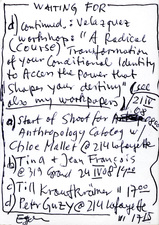 WAITING FOR
d) continued: Velazquez
workshops "A Radical
(course) Transformation
of your Conditional Identity
to Access the Power that
shapes your destiny"
also my workpapers (see
21 IV
a) Start of Shoot for
Anthropology Catalog w
Chloe Mallet @ 214 Lafayette
b) Tina & Jean François
@ 319 Grand 24 IV 08
c) Till Krautkrämer " 17:00
d) Petr Guzy @ 214 Lafayette